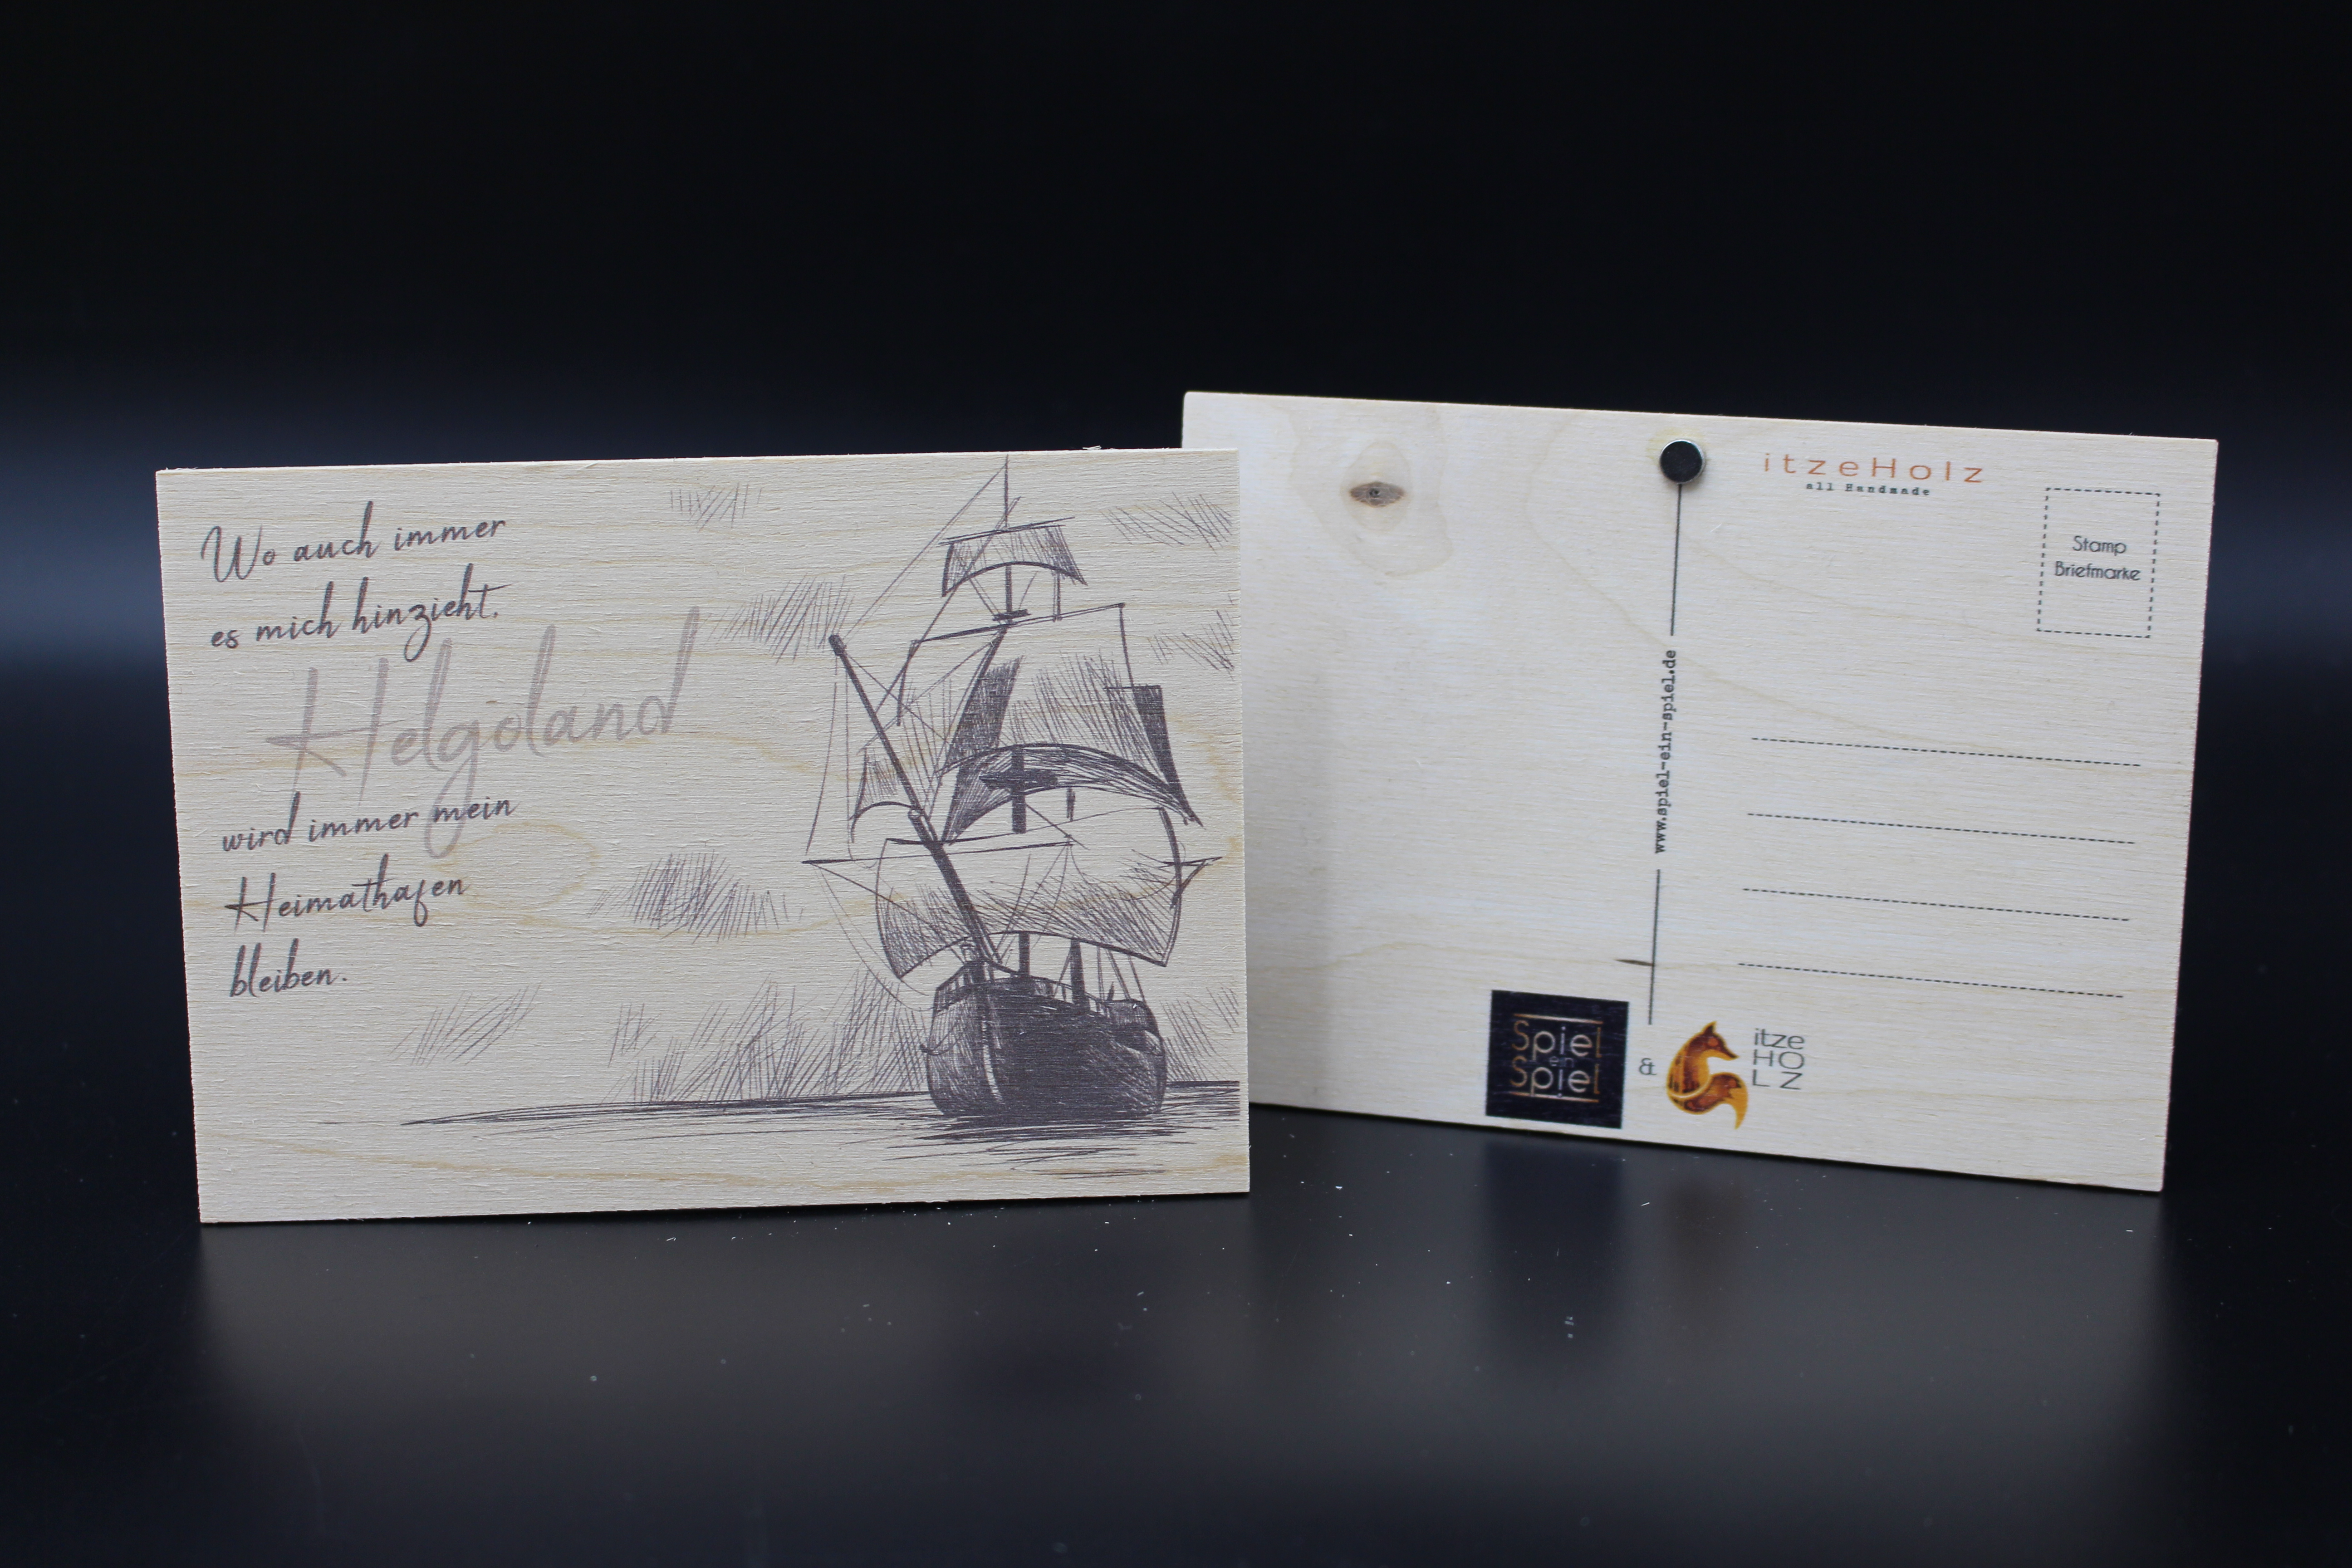 Wo auch immer
es mich hinzieht,
Helgoland
wird immer mein
Heimathafen
bleiben.
itzeHolz
all Handmade
Stamp
Briefmarke
www.spiel-ein-spiel.de
Spiel
ein
Spiel
&
itze
HO
LZ